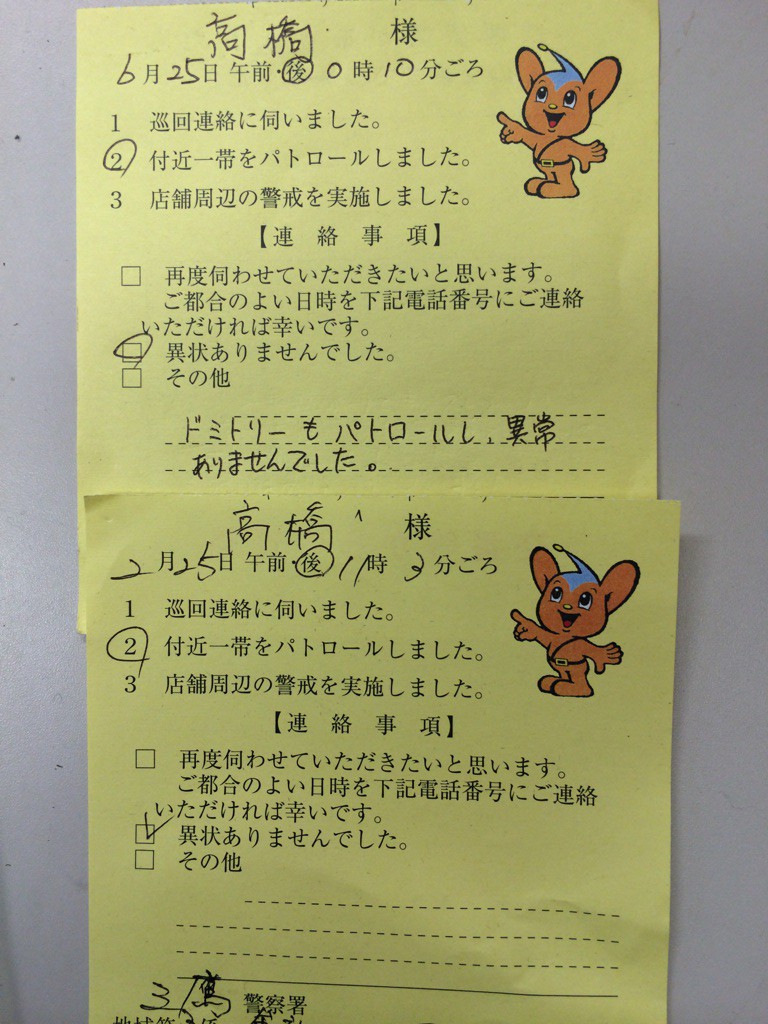 高橋 様
6月25日 午前・後 0時10分ごろ
1 巡回連絡に伺いました。
2 付近一帯をパトロールしました。
3 店舗周辺の警戒を実施しました。
【連絡事項】
□ 再度伺わせていただきたいと思います。
ご都合のよい日時を下記電話番号にご連絡
いただければ幸いです。
□ 異状ありませんでした。
□ その他
ドミトリーもパトロールし、異常
ありませんでした。
高橋 様
2月25日 午前・後 11時3分ごろ
1 巡回連絡に伺いました。
2 付近一帯をパトロールしました。
3 店舗周辺の警戒を実施しました。
【連絡事項】
□ 再度伺わせていただきたいと思います。
ご都合のよい日時を下記電話番号にご連絡
いただければ幸いです。
□ 異状ありませんでした。
□ その他
三鷹 警察署
地域第